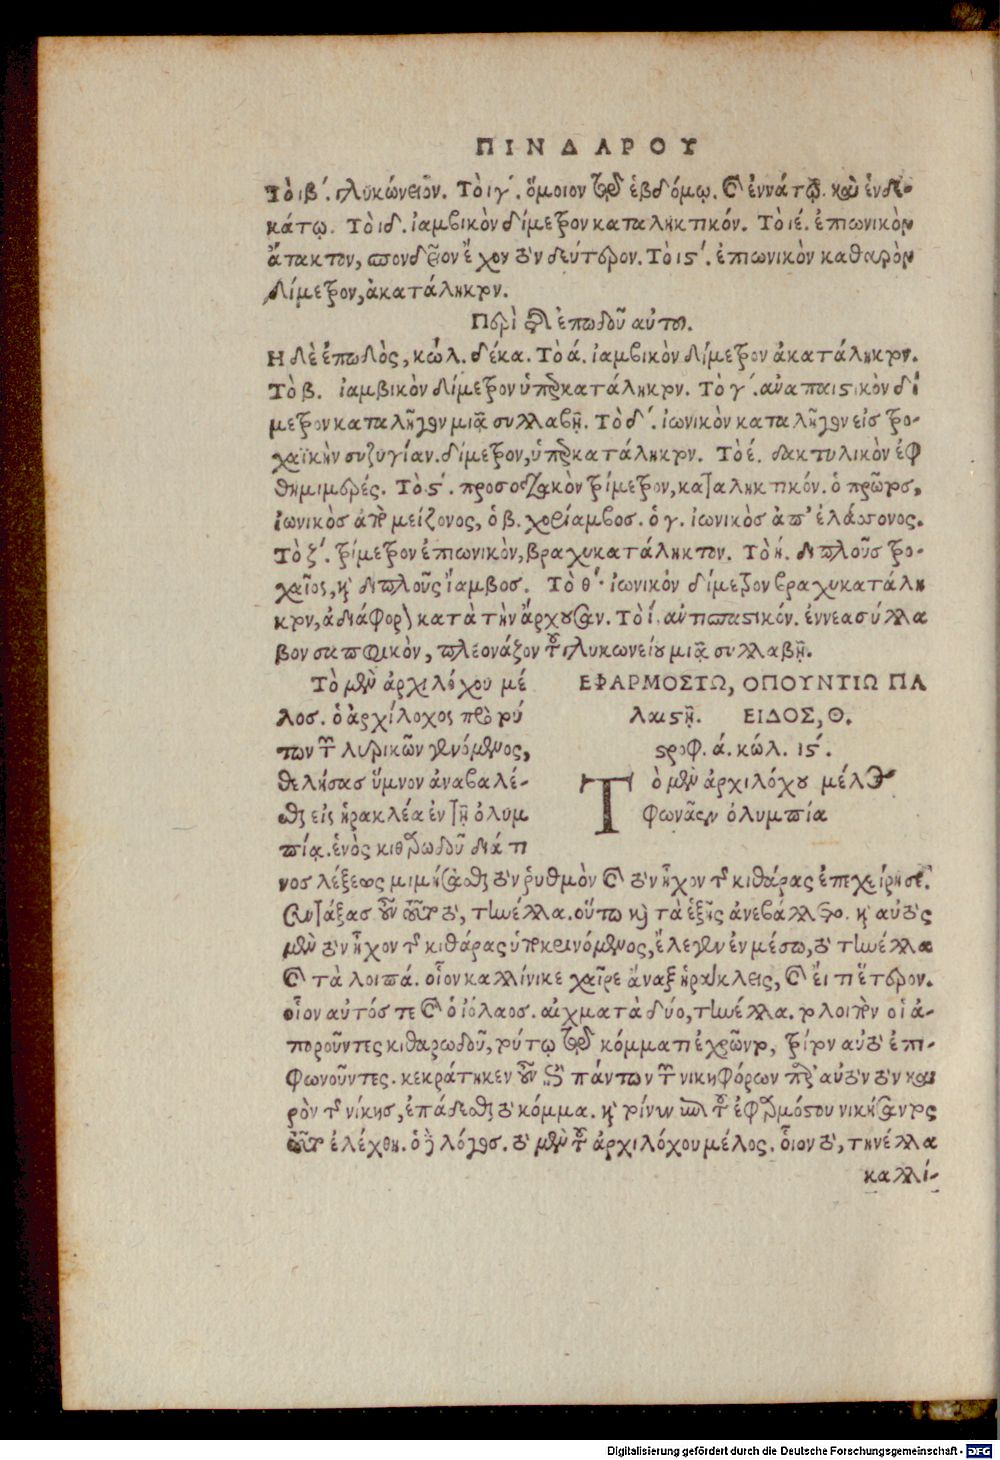 ΠΙΝΔΑΡΟΥ
Τὸ ιβ΄. γλυκώνειον. Τὸ ιγ΄. ὅμοιον τῷ ἑβδόμῳ. καὶ ἐννάτῳ. καὶ ἑνδε-
κάτῳ. Τὸ ιδ. ἰαμβικὸν δίμετρον καταληκτικόν. Τὸ ιέ. ἐπιωνικὸν
ἄτακτον, σπονδεῖον ἔχον τὸν δεύτερον. Τὸ ις΄. ἐπιωνικὸν καθαρὸν
δίμετρον, ἀκατάληκτον.
Περὶ τῆς ἐπωδοῦ αὐτοῦ.
Η δὲ ἐπωδὸς, κώλ. δέκα. Τὸ ά. ἰαμβικὸν δίμετρον ἀκατάληκτον.
Τὸ β. ἰαμβικὸν δίμετρον ὑπερκατάληκτον. Τὸ γ΄. ἀναπαιστικὸν δί
μετρον καταλῆγον μιᾷ συλλαβῇ. Τὸ δ΄. ἰωνικὸν καταλῆγον εἰς τρο-
χαϊκὴν συζυγίαν. δίμετρον, ὑπερκατάληκτον. Τὸ έ. δακτυλικὸν ἑφ
θημιμερές. Τὸ ς΄. προσοδιακὸν τρίμετρον, καταληκτικόν. ὁ πρῶτος,
ἰωνικὸς ἀπὸ μείζονος, ὁ β. χορίαμβος. ὁ γ. ἰωνικὸς ἀπ' ἐλάσσονος.
Τὸ ζ΄. τρίμετρον ἐπιωνικὸν, βραχυκατάληκτον. Τὸ ή. διπλοῦς τρο-
χαῖος, καὶ διπλοῦς ἴαμβος. Τὸ θ΄. ἰωνικὸν δίμετρον βραχυκατάλη
κτον, ἀδιάφορον κατὰ τὴν ἄρχουσαν. Τὸ ί. ἀντισπαστικόν. ἐννεασύλλα
βον σαπφικὸν, πλεονάζον τοῦ γλυκωνείου μιᾷ συλλαβῇ.
Τὸ μὲν ἀρχιλόχου μέ
λος. ὁ ἀρχίλοχος πρὸ τού
των τῶν λυρικῶν γενόμενος,
θελήσας ὕμνον ἀναβαλέ-
σθαι εἰς ἡρακλέα ἐν τῇ ὀλυμ
πίᾳ. ἑνὸς κιθαρωδοῦ διά τι
ΕΦΑΡΜΟΣΤΩ, ΟΠΟΥΝΤΙΩ ΠΑ
λαιστῇ. ΕΙΔΟΣ, Θ.
στροφ. ά. κώλ. ις΄.
Τὸ μὲν ἀρχιλόχου μέλος
φωνᾶεν ὀλυμπία
νος λέξεως μιμήσασθαι τὸν ῥυθμὸν καὶ τὸν ἦχον τῆς κιθάρας ἐπεχείρησε.
συντάξας οὖν τοῦτο τὸ, τήνελλα. οὕτω καὶ τὰ ἑξῆς ἀνεβάλλετο. καὶ αὐτὸς
μὲν τὸν ἦχον τῆς κιθάρας ὑποκρινόμενος, ἔλεγεν ἐν μέσῳ, τὸ τήνελλα
καὶ τὰ λοιπά. οἷον καλλίνικε χαῖρε ἄναξ ἡράκλεις, καὶ εἴ τι ἕτερον.
οἷον αὐτός τε καὶ ὁ ἰόλαος. αἰχματὰ δύο, τήνελλα. τολοιπὸν οἱ ἀ-
ποροῦντες κιθαρωδοῦ, τούτῳ τῷ κόμματι ἐχρῶντο, τρίτον αὐτὸ ἐπι-
φωνοῦντες. κεκράτηκεν οὖν ἐπὶ πάντων τῶν νικηφόρων πρὸς αὐτὸν τὸν και
ρὸν τῆς νίκης, ἐπάδεσθαι τὸ κόμμα. καὶ τοίνυν ἐπὶ τοῦ ἐφαρμόστου νικήσαντος
τοῦτο ἐλέχθη. ὁ δὲ λόγος. τὸ μὲν τοῦ ἀρχιλόχου μέλος. οἷον τὸ, τήνελλα
καλλί-
Digitalisierung gefördert durch die Deutsche Forschungsgemeinschaft - DFG